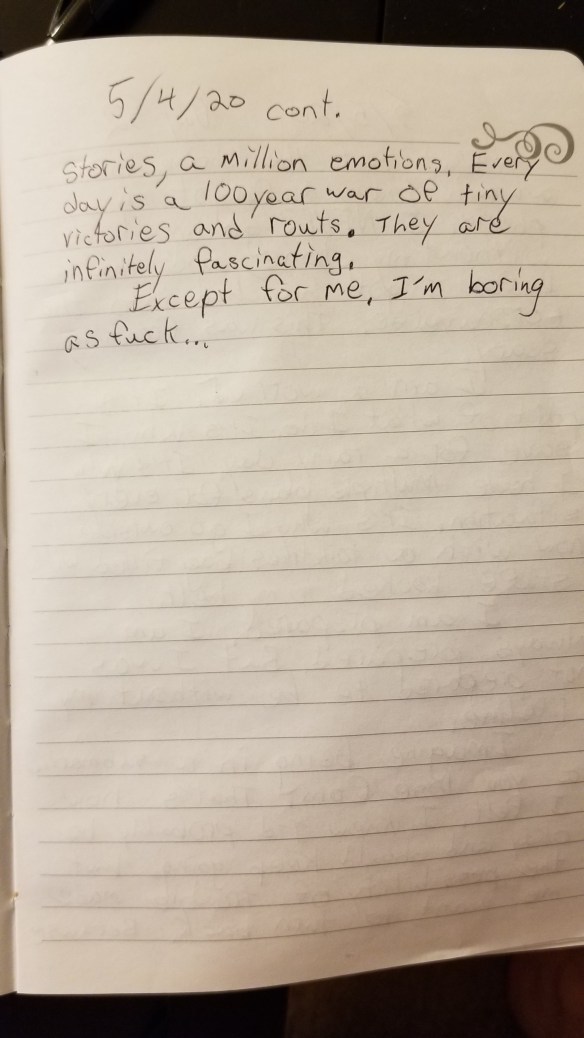 5/4/20 cont.
stories, a million emotions. Every
day is a 100 year war of tiny
victories and routs. They are
infinitely fascinating.
Except for me, I'm boring
as fuck...